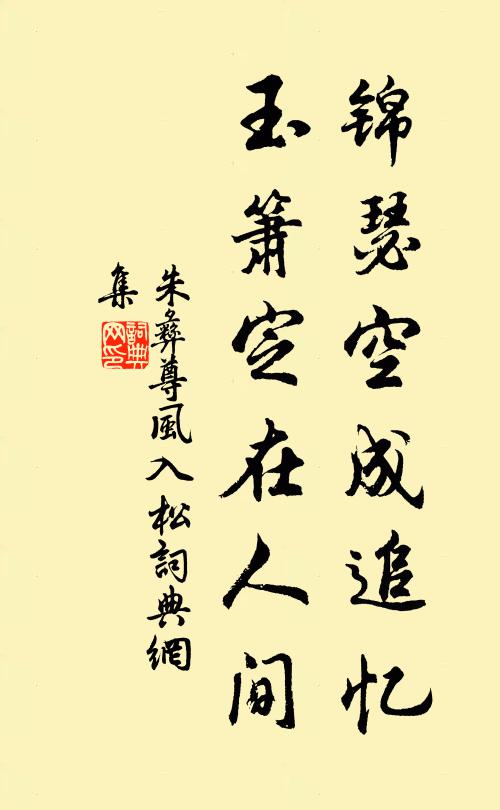 锦瑟空成追忆
玉箫定在人间
朱彝尊風入松詞典網
集
詞典
网印